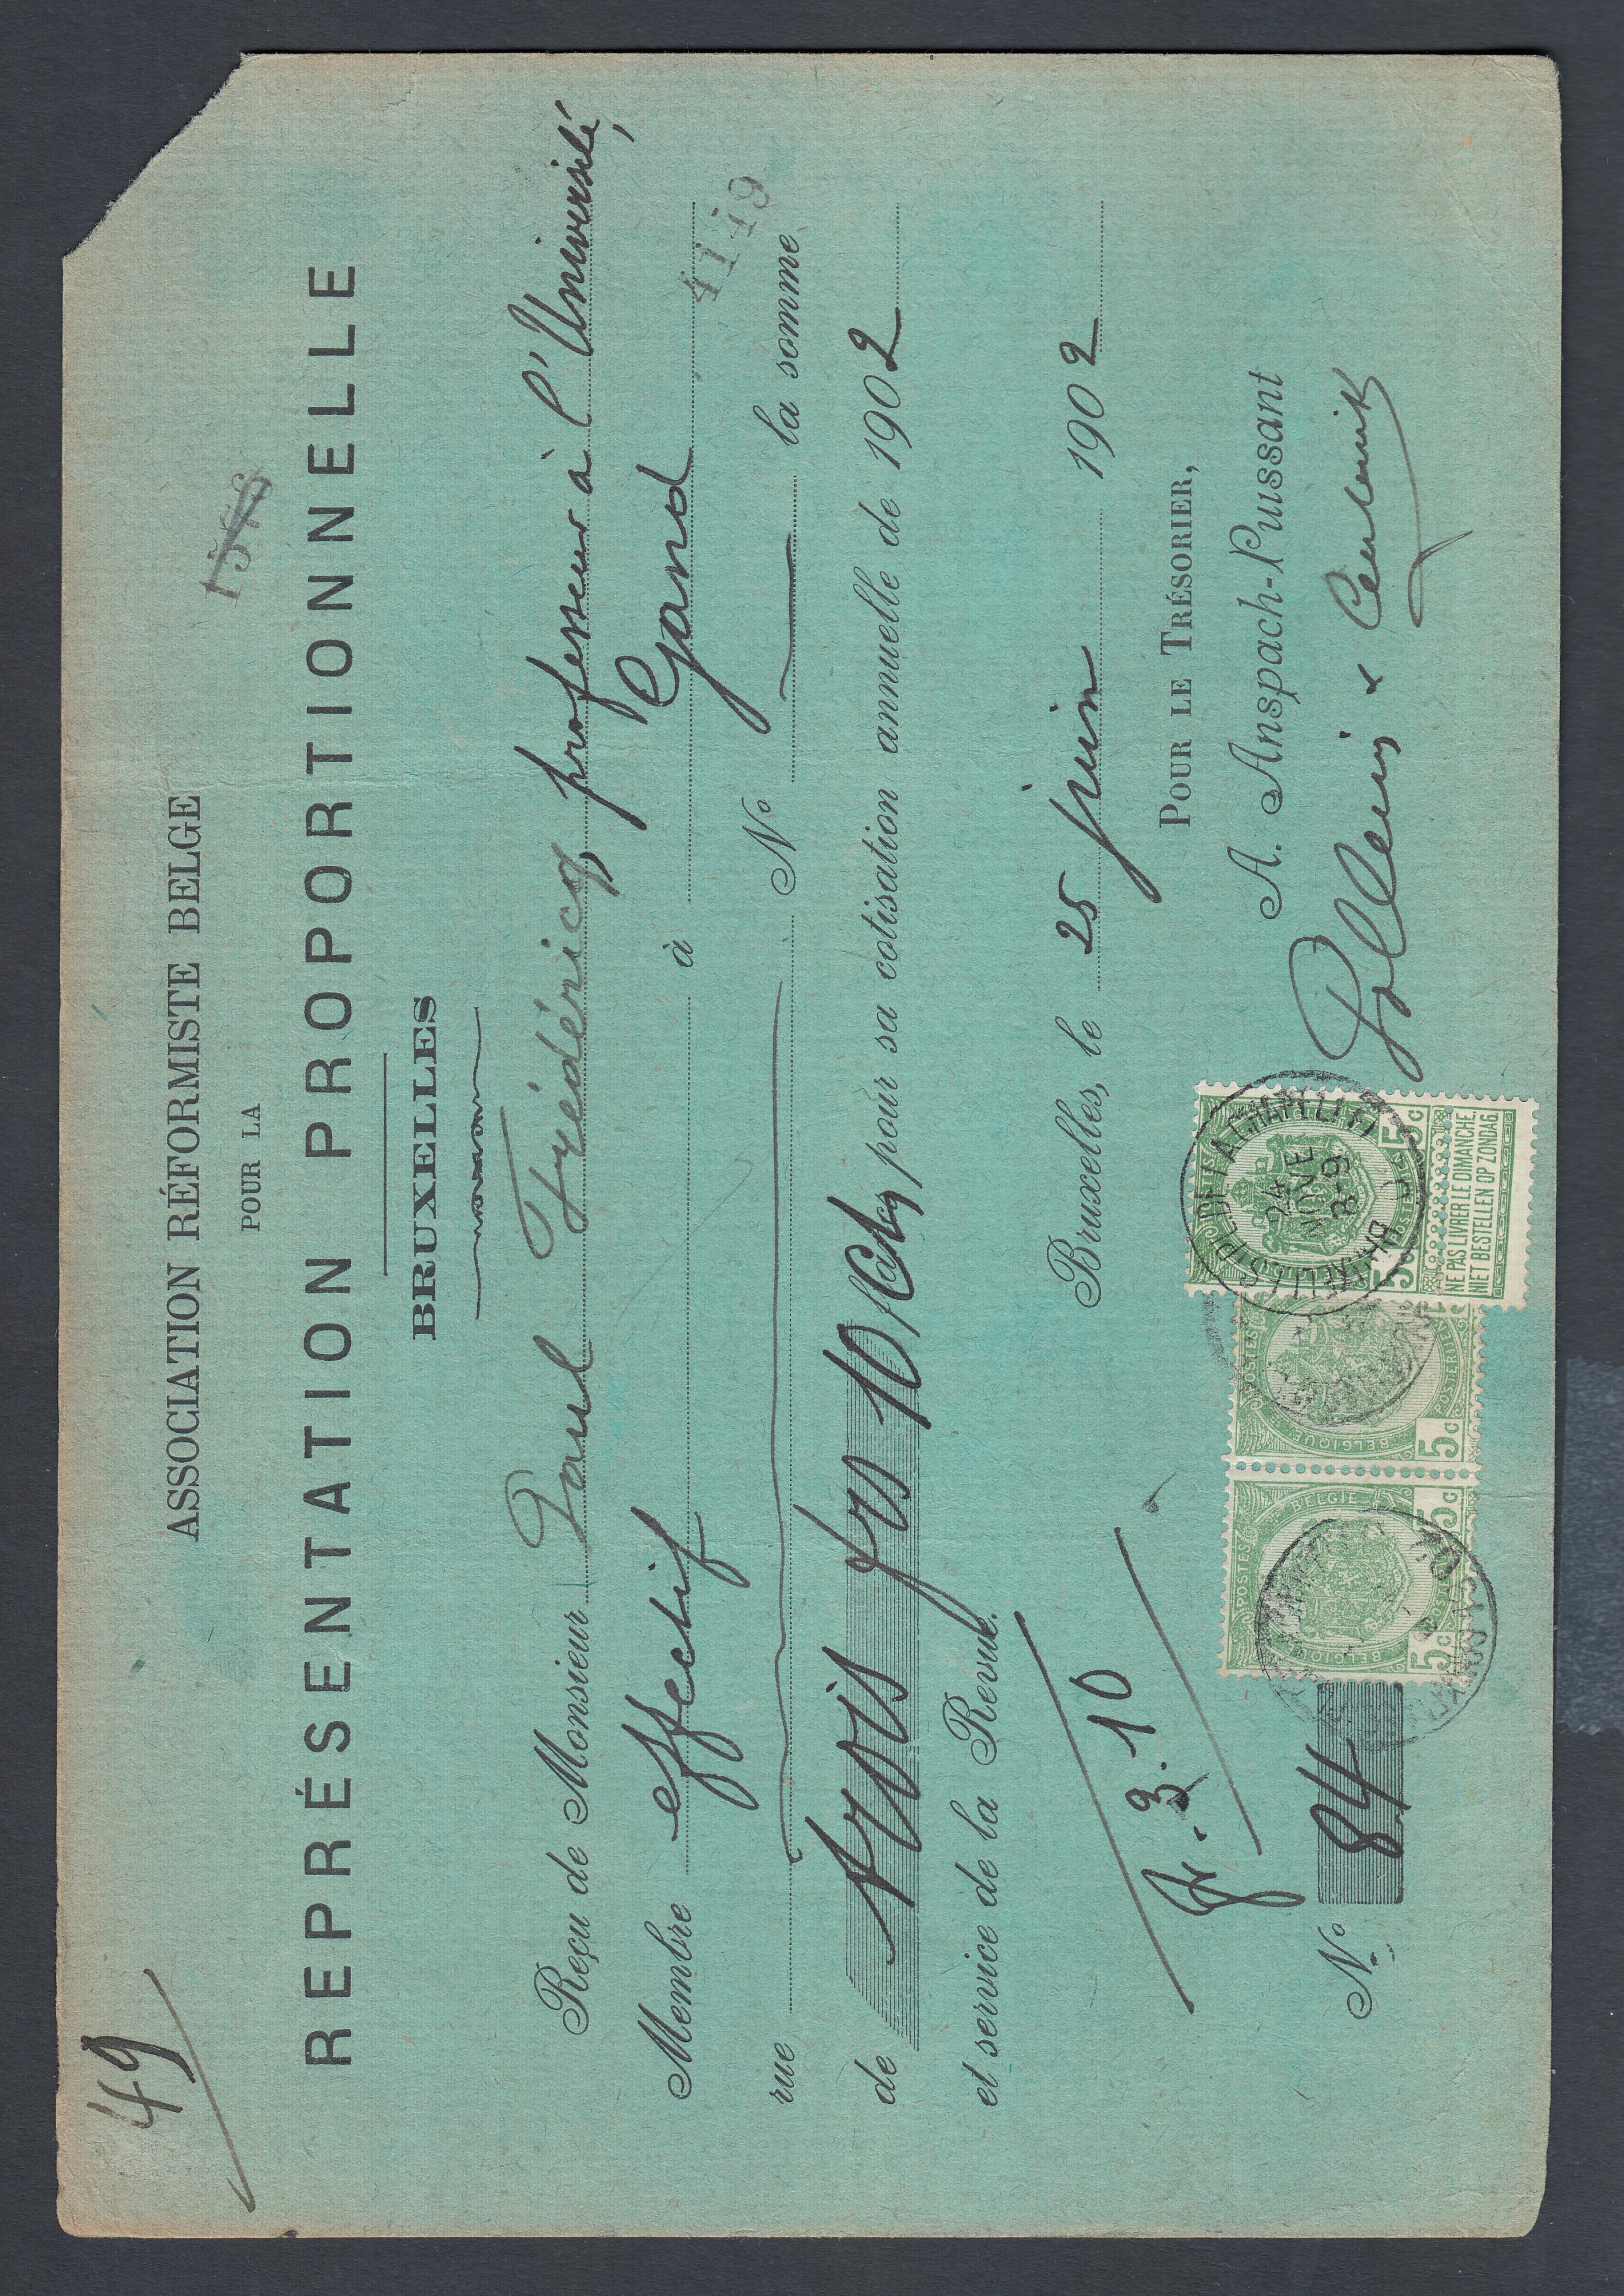 49
1578
ASSOCIATION RÉFORMISTE BELGE
POUR LA
REPRÉSENTATION PROPORTIONNELLE
BRUXELLES
Reçu de Monsieur Paul Frédéricq, professeur à l'Université,
Membre effectif à Gand
4149
rue N° la somme
de trois frs 10 pour sa cotisation annuelle de 1902
et service de la Revue.
Bruxelles, le 25 juin 1902
fr. 3.10
POUR LE TRÉSORIER,
A. Anspach-Puissant
N° 84
POSTES POSTERIJEN
BELGIQUE BELGIE
5c 5c
5c
5c 5c
NE PAS LIVRER LE DIMANCHE
NIET BESTELLEN OP ZONDAG.
BRUXELLES (PL. DE LA CHAPELLE)
24
JUIN
8-9